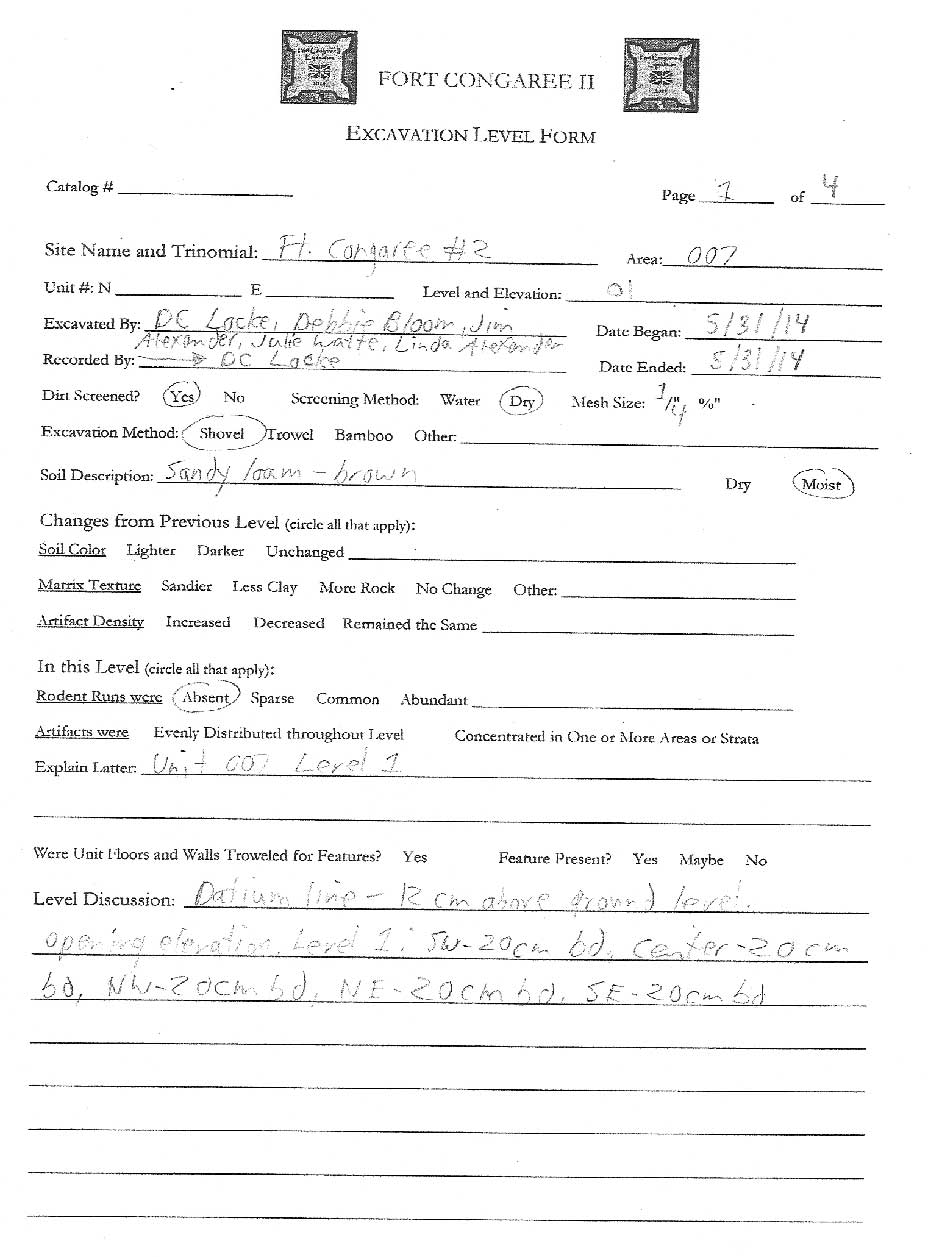 FORT CONGAREE II
EXCAVATION LEVEL FORM
Catalog #
Page 1 of 4
Site Name and Trinomial: Ft. Congaree #2 Area: 007
Unit #: N E Level and Elevation: 01
Excavated By: DC Locke, Debbie Bloom, Jim Date Began: 5/31/14
Alexander, Julie Watte, Linda Alexander
Recorded By: → DC Locke Date Ended: 5/31/14
Dirt Screened? Yes No Screening Method: Water Dry Mesh Size: 1/4"
Excavation Method: Shovel Trowel Bamboo Other:
Soil Description: Sandy loam - brown Dry Moist
Changes from Previous Level (circle all that apply):
Soil Color Lighter Darker Unchanged
Matrix Texture Sandier Less Clay More Rock No Change Other:
Artifact Density Increased Decreased Remained the Same
In this Level (circle all that apply):
Rodent Runs were Absent Sparse Common Abundant
Artifacts were Evenly Distributed throughout Level Concentrated in One or More Areas or Strata
Explain Latter: Unit 007 Level 1
Were Unit Floors and Walls Troweled for Features? Yes Feature Present? Yes Maybe No
Level Discussion: Datium line - 12 cm above ground level.
opening elevation, Level 1: SW-20cm bd, center-20cm
bd, NW-20cm bd, NE-20cm bd, SE-20cm bd